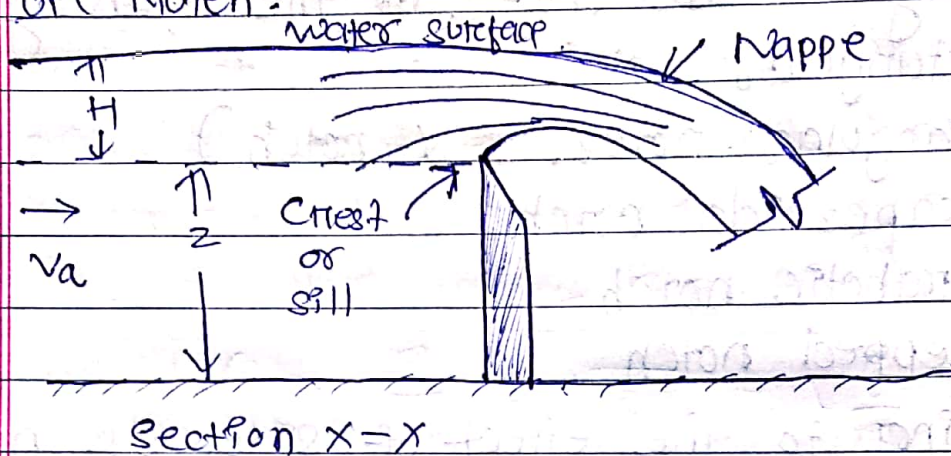 or Notch.
Water surface
Nappe
H
Crest
or
sill
Z
Va
Section X-X